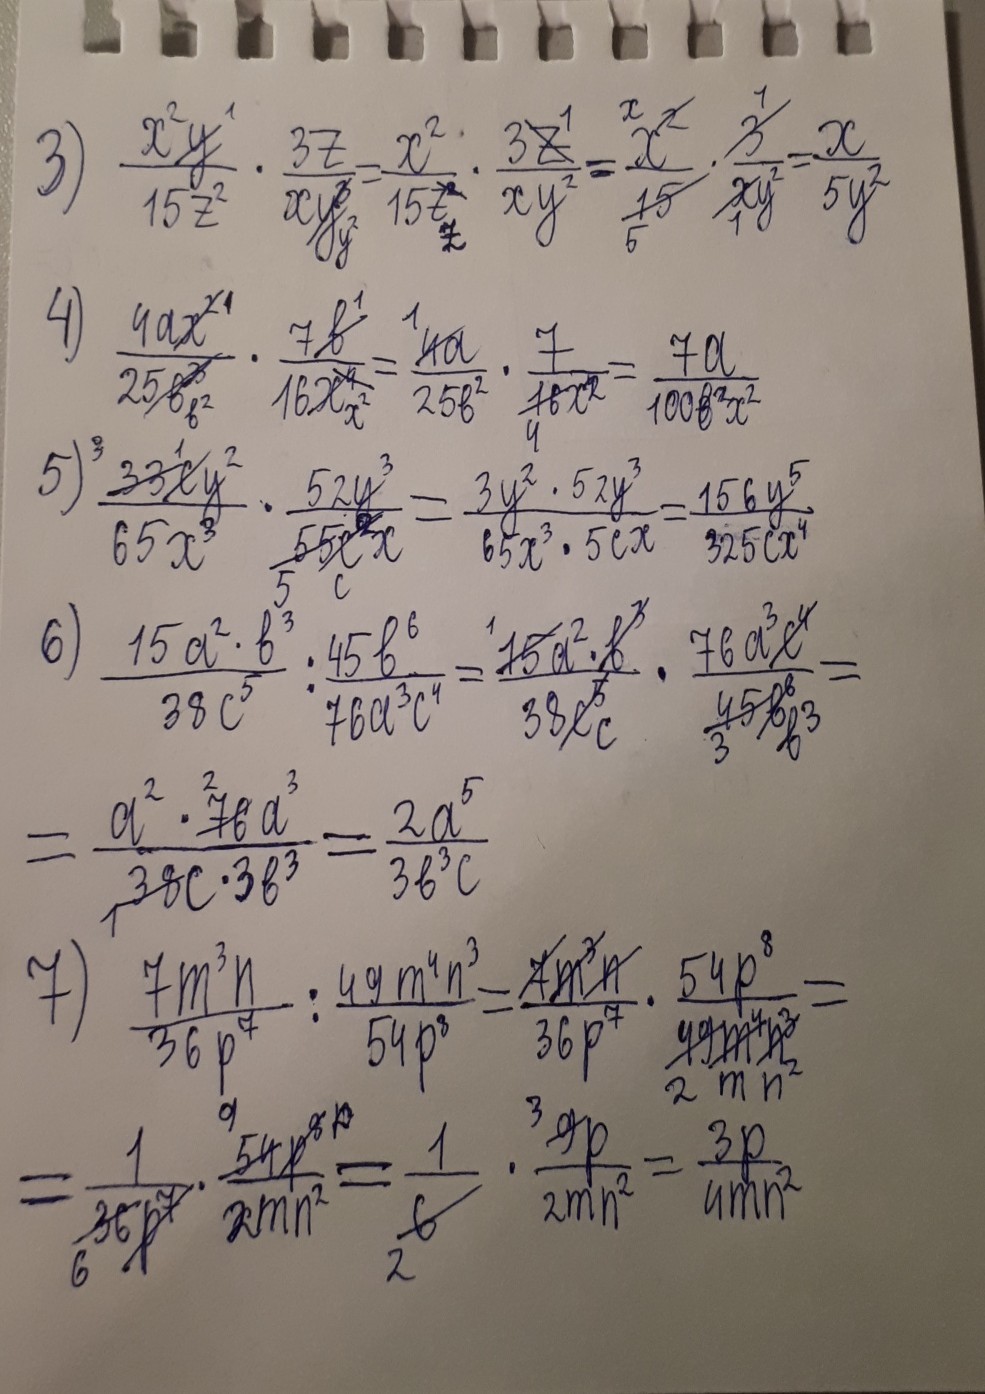 3) x²y/15z² · 3z/xy³ = x²/15z² · 3z/xy² = x²/15 · 3/xy² = x/5y²
4) 4ax²/25в³ · 7в/16x⁴ = 4a/25в² · 7/16x² = 7a/100в²x²
5) 33cy²/65x³ · 52y³/55c²x = 3y² · 52y³/65x³ · 5cx = 156y⁵/325cx⁴
6) 15a² · в³/38c⁵ : 45в⁶/76a³c⁴ = 15a² · в³/38c⁵ · 76a³c⁴/45в⁶ =
= a² · 76a³/38c · 3в³ = 2a⁵/3в³c
7) 7m³n/36p⁷ : 49m⁴n³/54p⁸ = 7m³n/36p⁷ · 54p⁸/49m⁴n³ =
= 1/36p⁷ · 54p⁸/2mn² = 1/6 · 9p/2mn² = 3p/4mn²